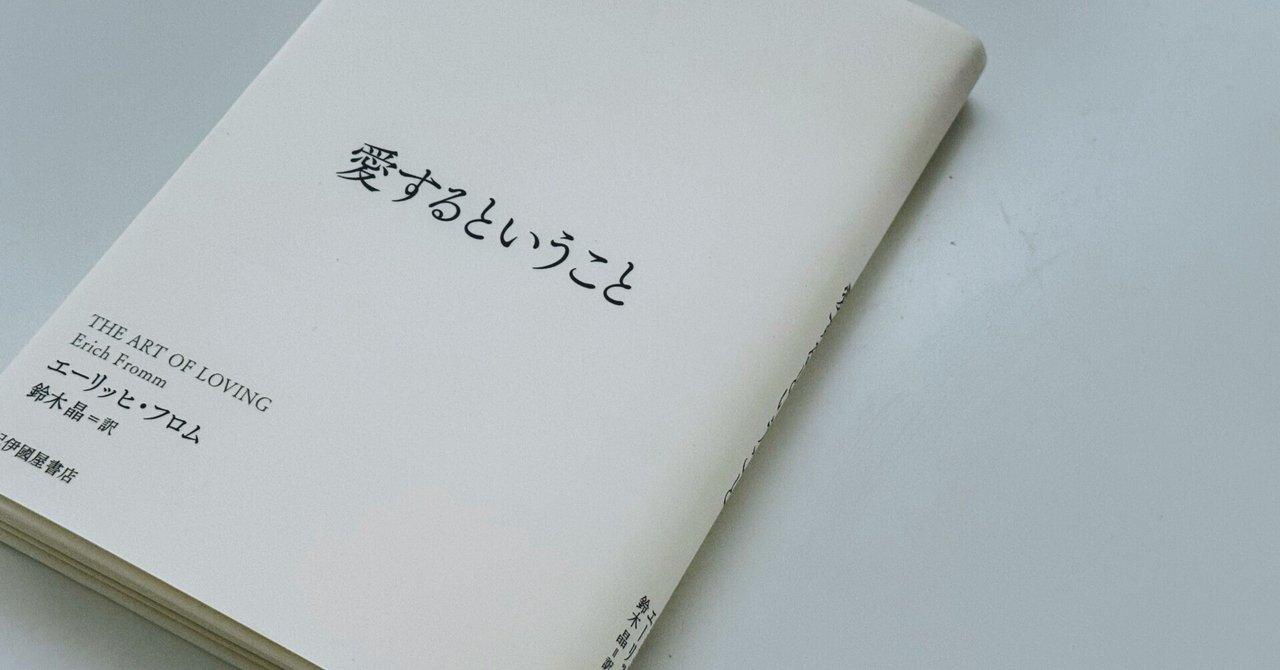 愛するということ
THE ART OF LOVING
Erich Fromm
エーリッヒ・フロム
鈴木晶=訳
伊國屋書店
エーリ
鈴木晶=訳